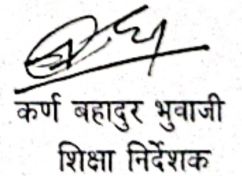 कर्ण बहादुर भुवाजी
शिक्षा निर्देशक